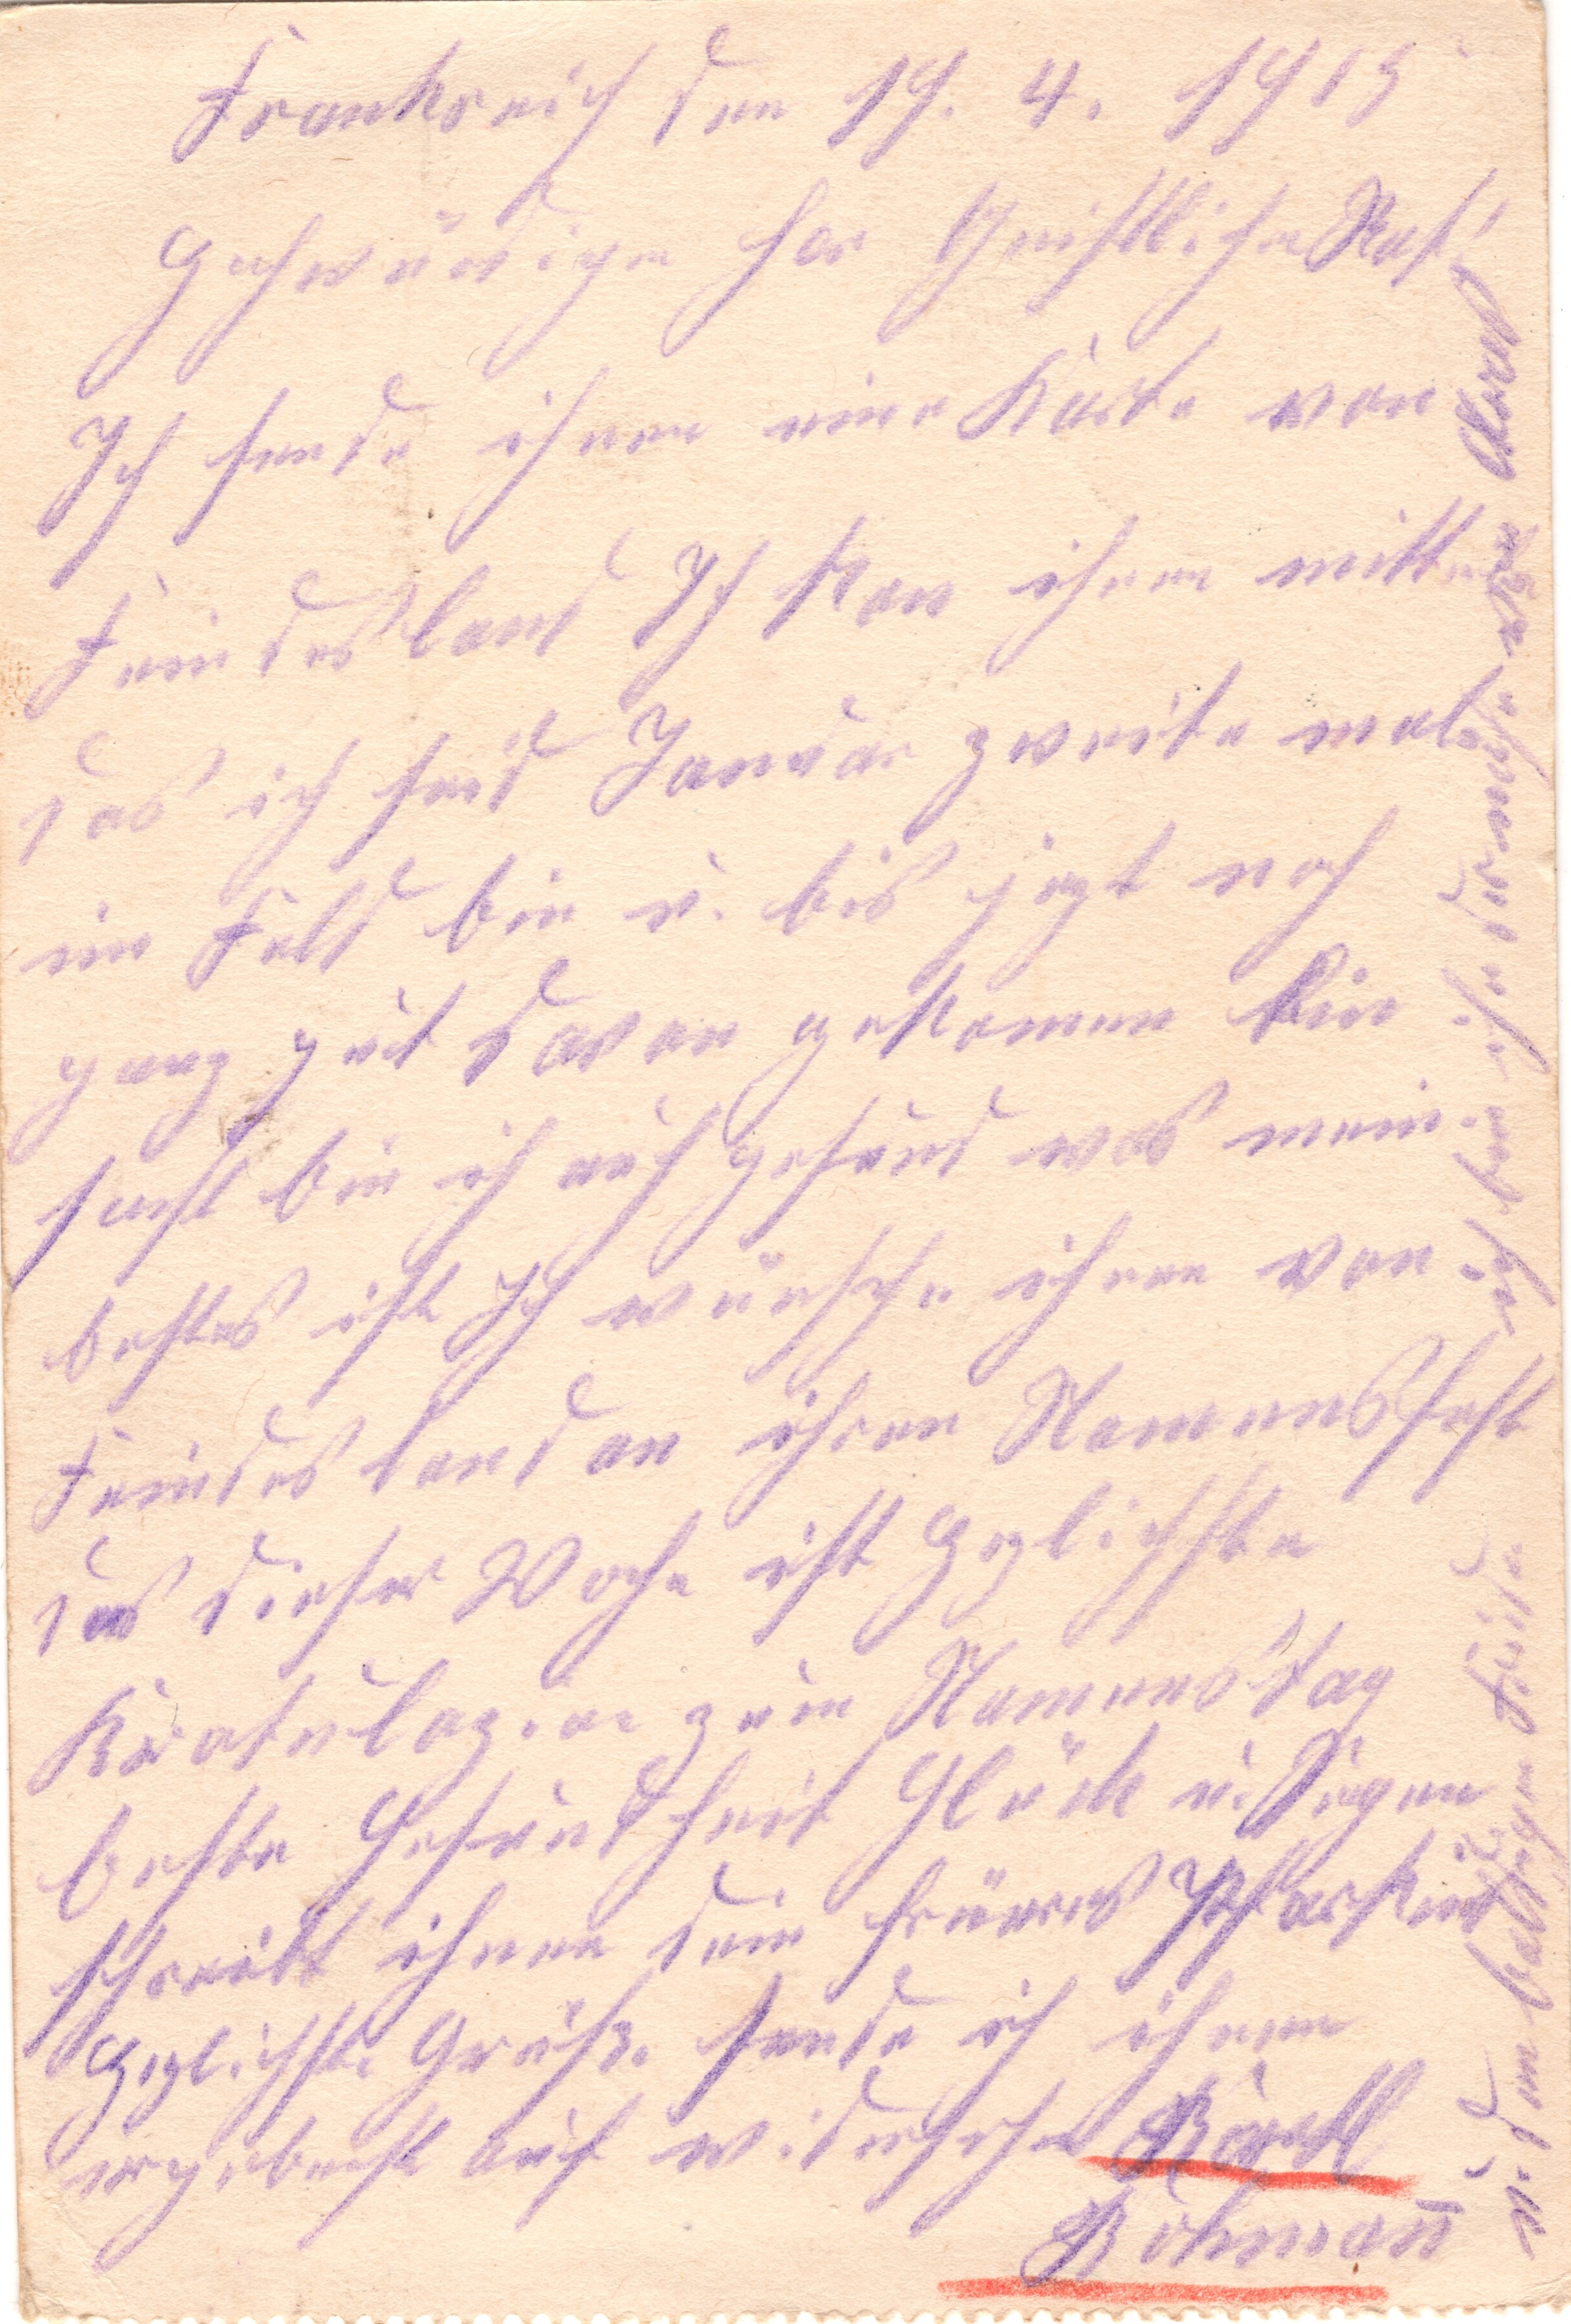 Frankreich den 19. 4. 1915
Hochwürdigen Her Geistlichen Rath!
Ich sende ihnen eine Karte von
Feindesland Ich kan ihnen mitten
das ich seid Januar zweite mal
im Feld bin u. bis jezt noch
ganz gut davon gekomen bin
sonst bin ich auch gesund was mein
bestes ist Ich wünsche ihnen von
Feindesland an ihren Namensfest
das dieser Woche ist Herzlichste
Kratulazion zum Namenstag
beste Gesundheit Glück u. Segen
schreibt ihnen dein früeres Pfarkind
Herzlichste Grüße sende ich ihnen
ergebenst auf widersehen Karl
Bohman